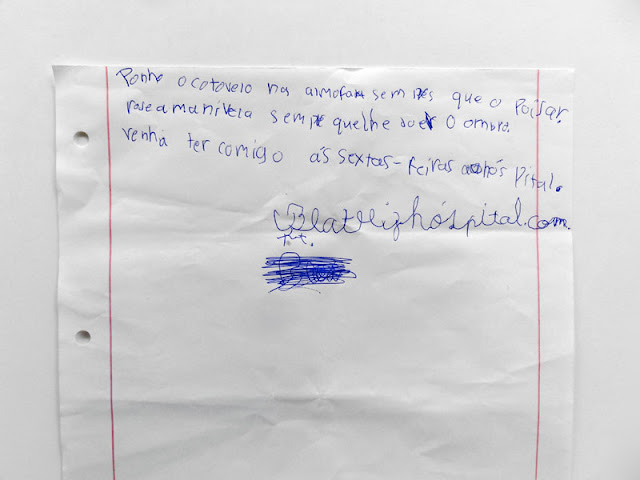 Ponha o cotovelo nas almofan sempes que o poisar.
rose a manivela sempe quelhe doer o ombro.
venha ter comigo ás sextas-feiras aohós Pital.
hóspital.com.